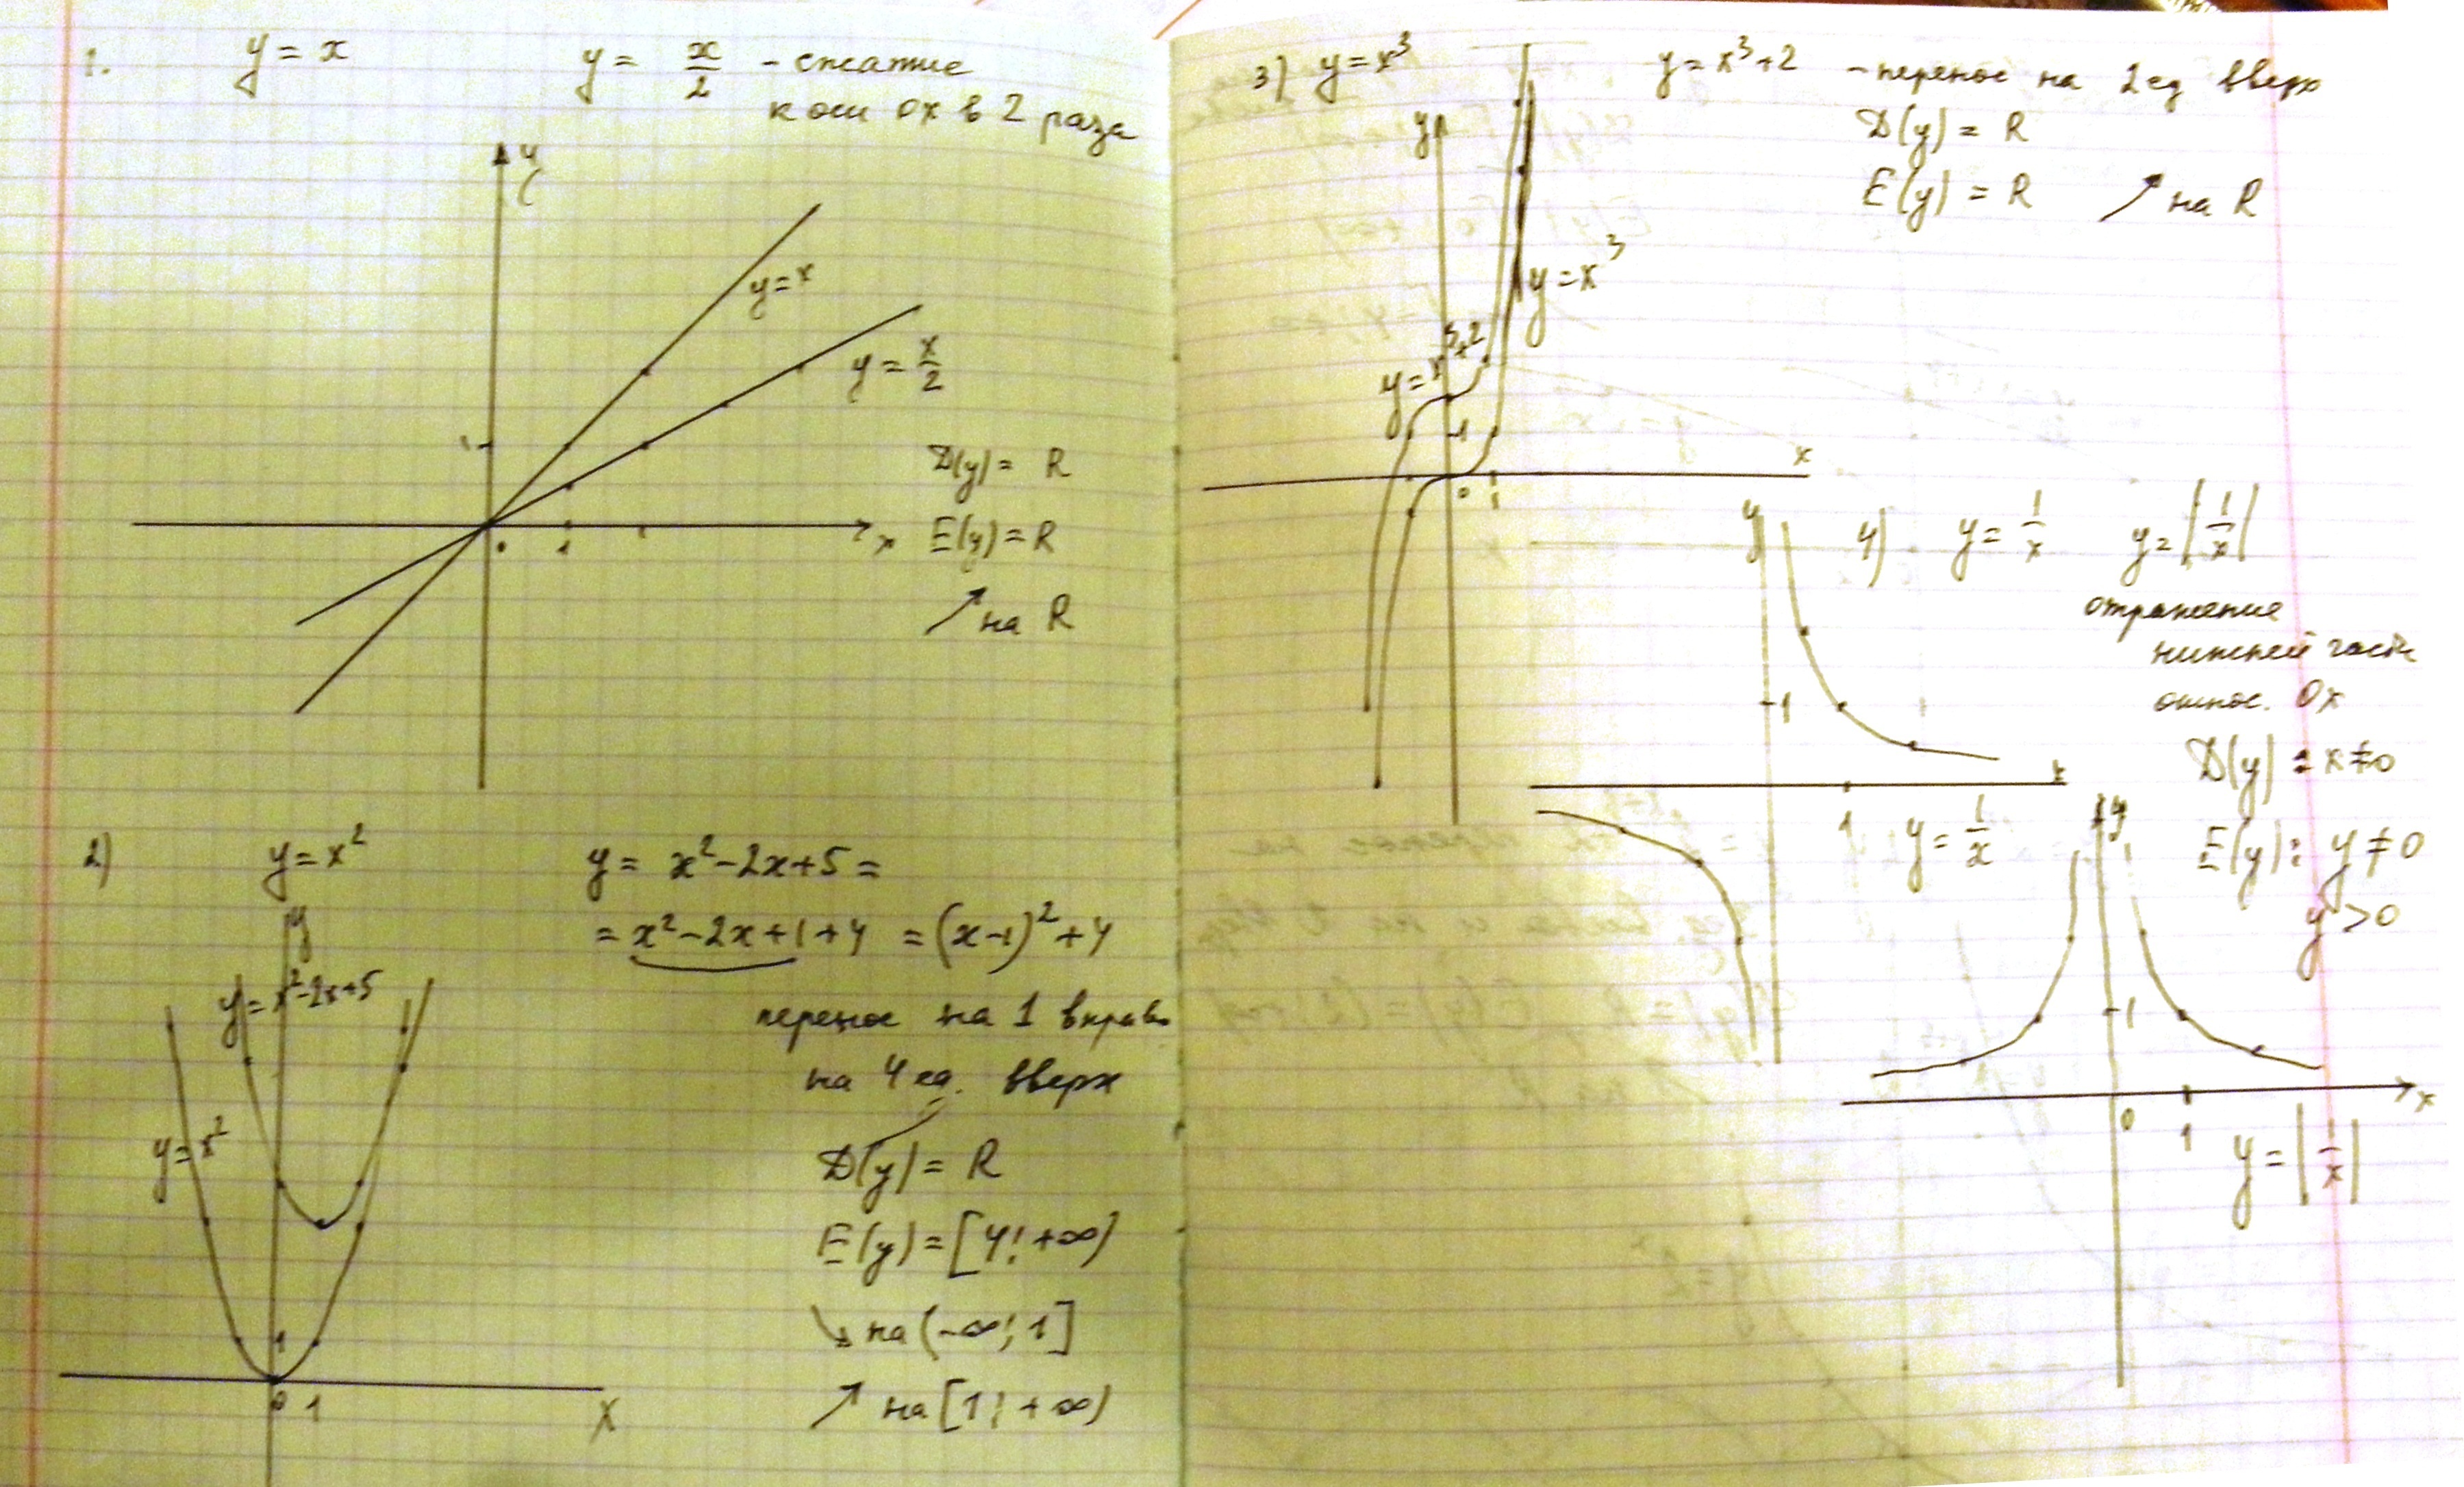 1. y = x
y = x/2 - сжатие
к оси Ox в 2 раза
y
y=x
y = x/2
1
0 1 x
D(y) = R
E(y) = R
↗ на R
2) y = x²
y = x²-2x+5 =
= x²-2x+1+4 = (x-1)²+4
перенос на 1 вправо
на 4 ед. вверх
D(y) = R
E(y) = [4; +∞)
↘ на (-∞; 1]
↗ на [1; +∞)
y
y=x²-2x+5
y=x²
1
0 1 x
3) y=x³
y=x³+2 - перенос на 2 ед вверх
D(y) = R
E(y) = R ↗ на R
y
y=x³
y=x³+2
1
x
0 1
4) y = 1/x y = |1/x|
отражение
нижней части
относ. Ox
D(y) : x≠0
E(y): y≠0
y>0
y
1
x
1
y = 1/x
y
1
x
0 1
y = |1/x|